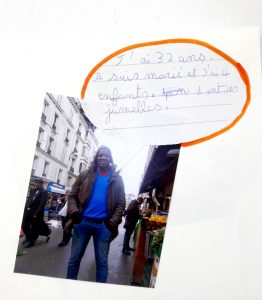 J'ai 32 ans.
Je suis marié et j'ai 4
enfants, dont des
jumelles.